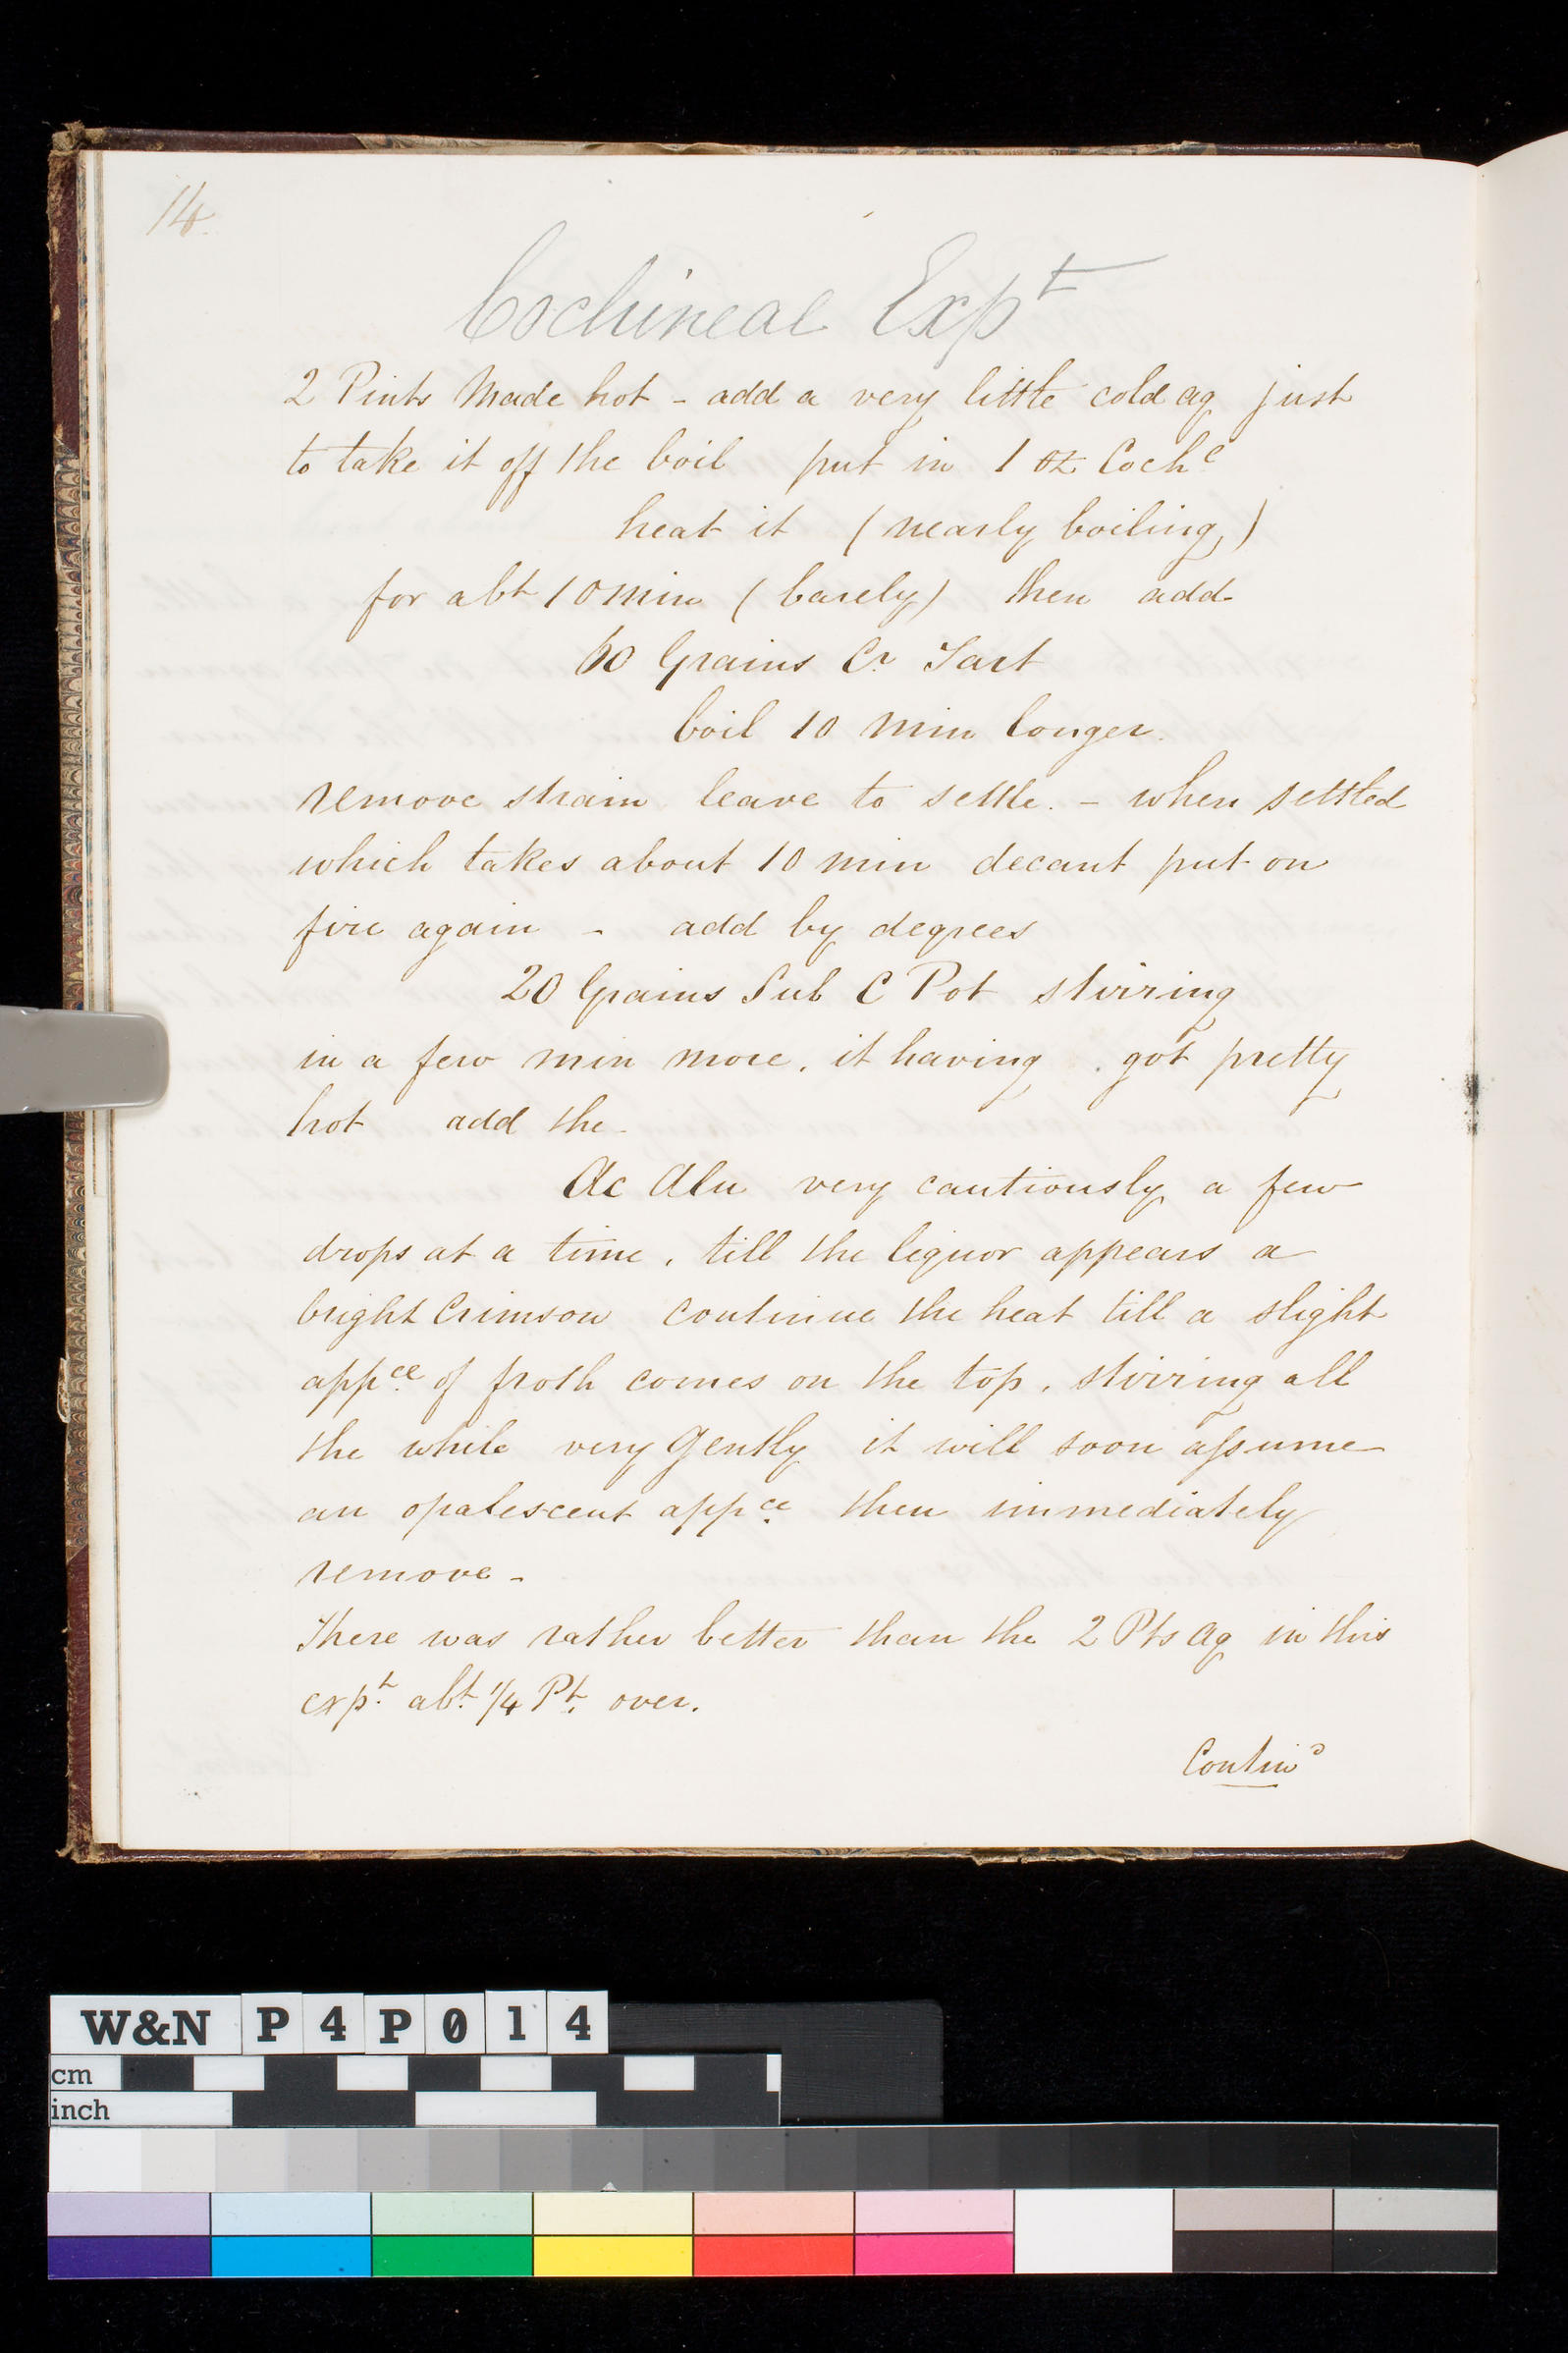 14.
Cochineal Expt
2 Pints Made hot - add a very little cold aq just
to take it off the boil put in 1 oz Coche
heat it (nearly boiling)
for abt 10 min (barely) then add
60 Grains Cr Tart
boil 10 min longer.
remove strain leave to settle. - when settled
which takes about 10 min decant put on
fire again - add by degrees
20 Grains Sub C Pot stirring
in a few min more, it having got pretty
hot add the
Ac Alu very cautiously a few
drops at a time, till the liquor appears a
bright Crimson continue the heat till a slight
appce of froth comes on the top, stirring all
the while very Gently it will soon assume
an opalescent appce then immediately
remove -
There was rather better than the 2 Pts aq in this
expt abt 1/4 Pt. over.
Contind
W&N P4P014
cm
inch